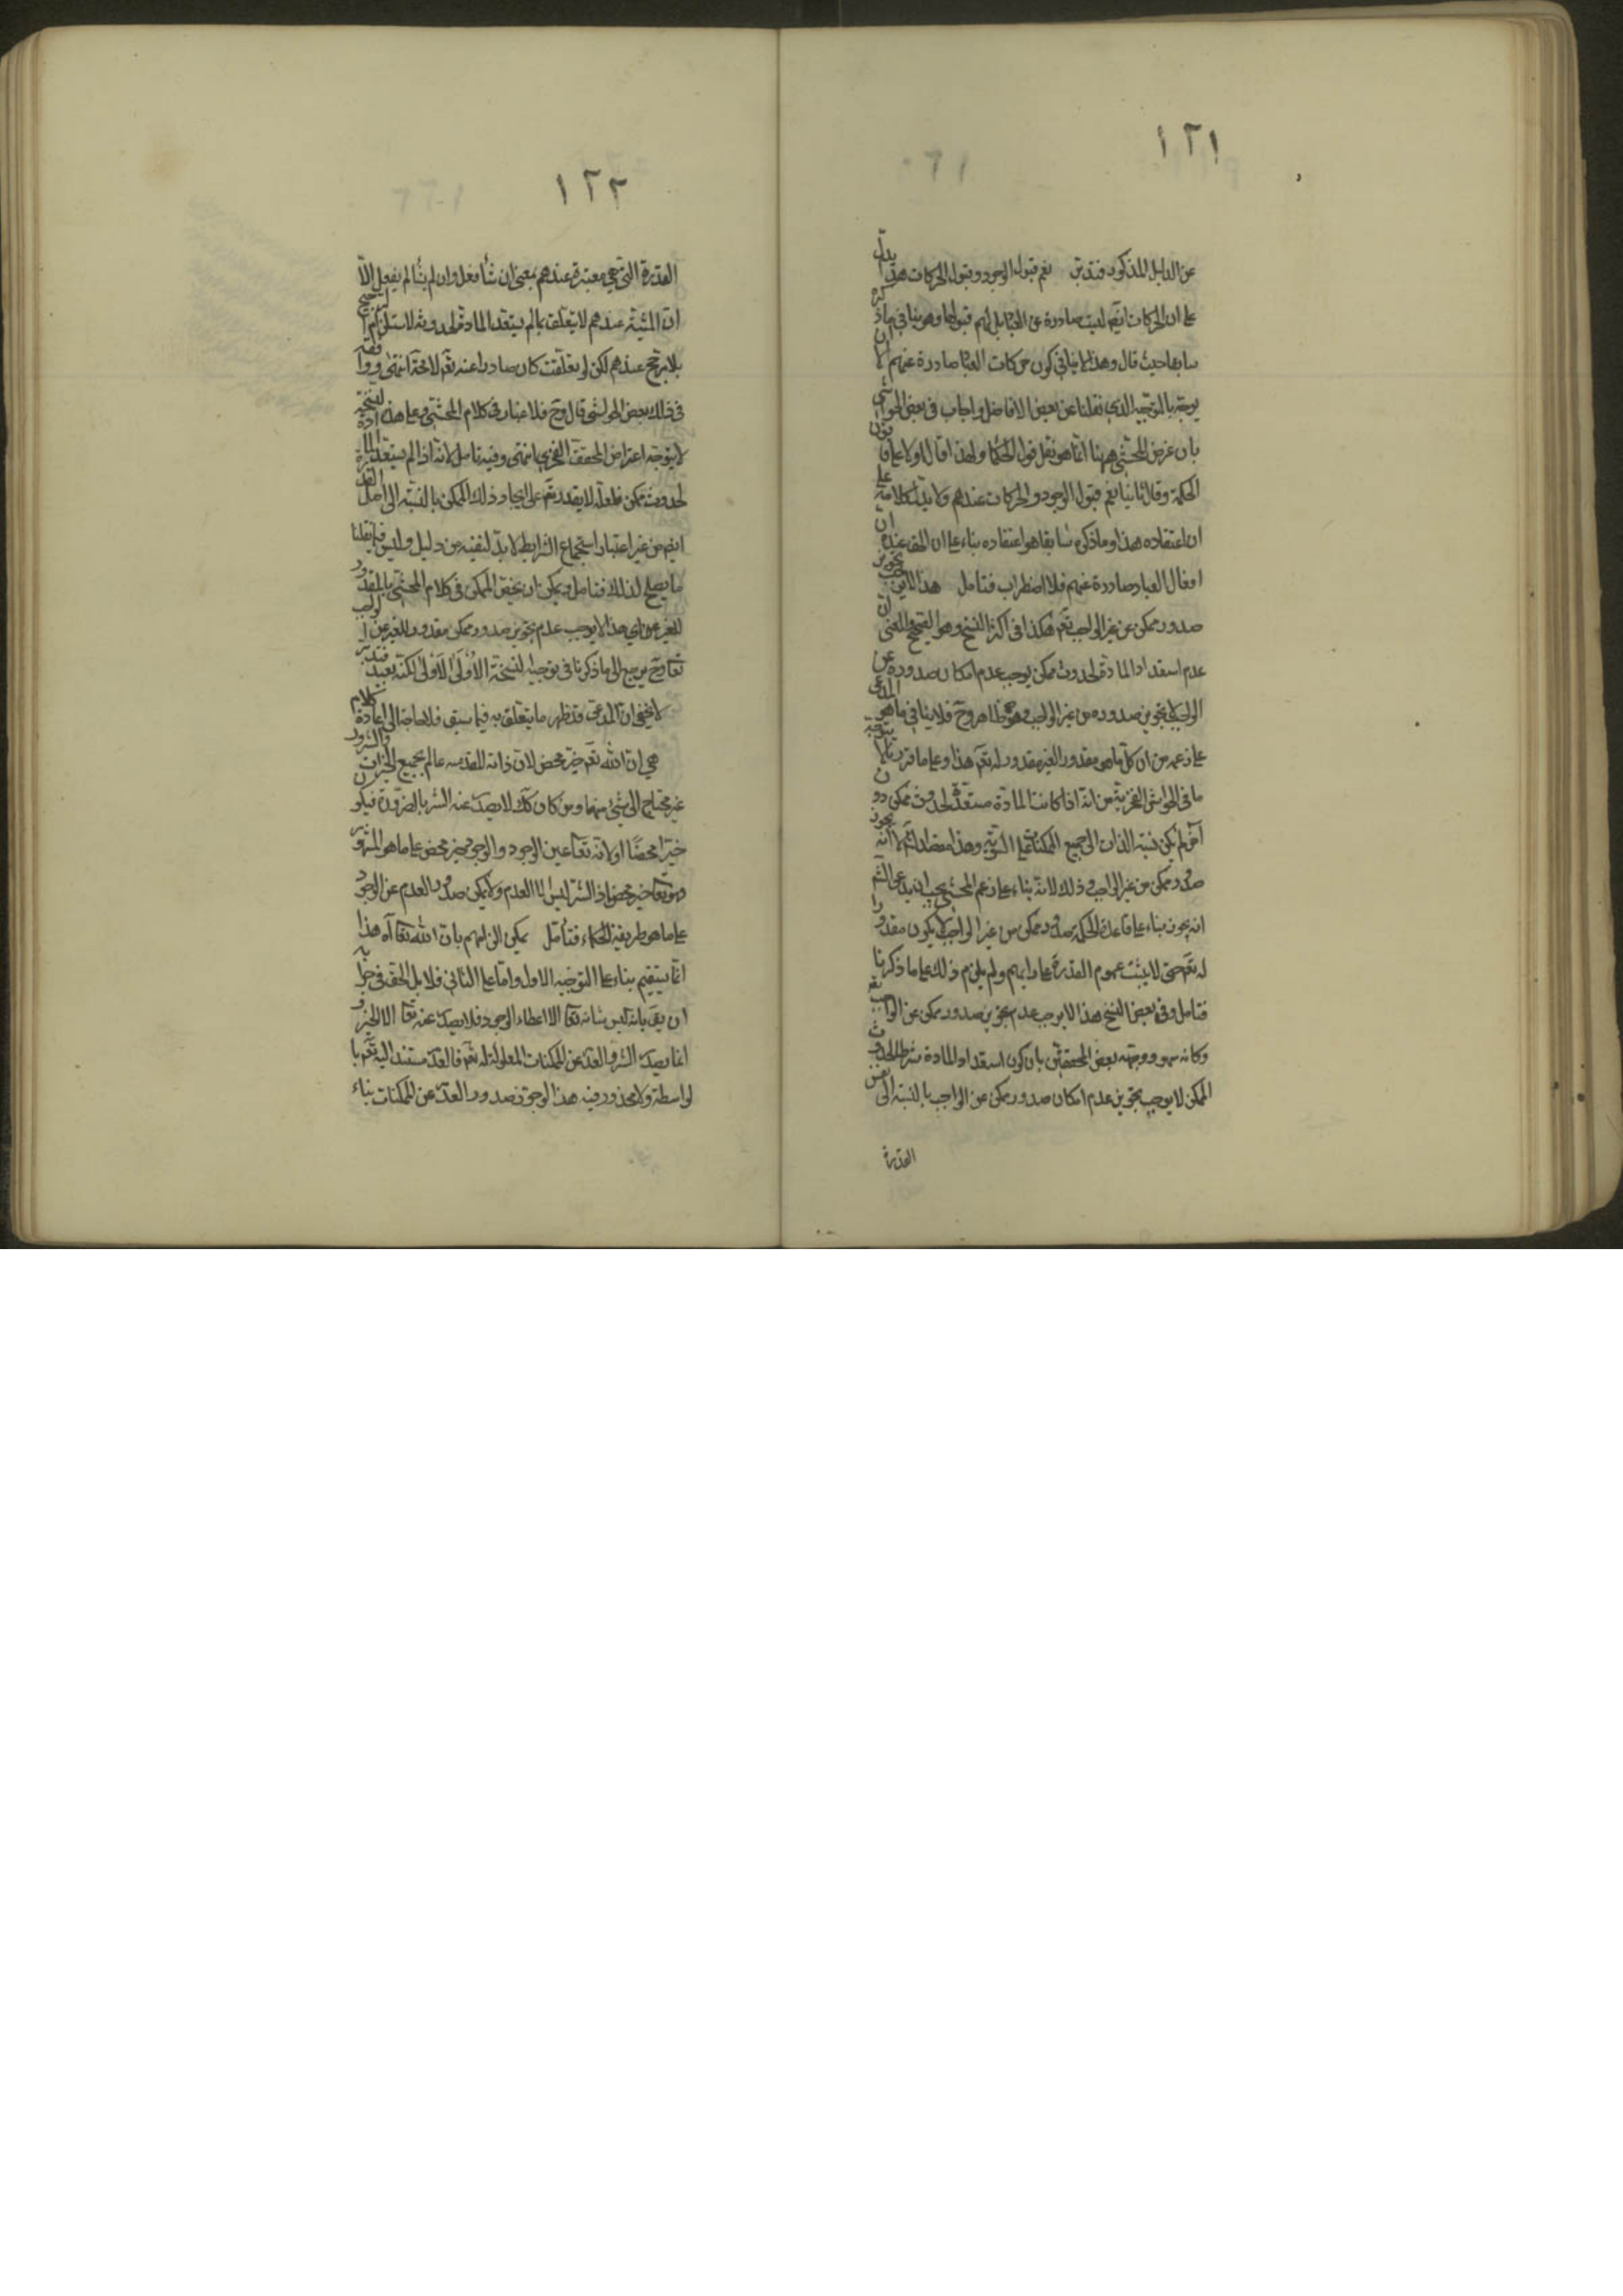 ١٢١
عن الدليل المذكور فتدبر نعم قبول الوجود وقبول الحركات هذا يدل
على ان الحركات ايضا ليست صادرة عن العباد بل لهم قبولها وهو ينافي ما ذكره
سابقا حيث قال وهذا لا ينافي كون حركات العباد صادرة عنهم الا ان
يوجه بالتوجيه الذي نقلنا عن بعض الافاضل واجاب في بعض الحواشي
بان غرض المحشي ههنا انما هو نقل قول الحكما ولهذا قال اولا على قانون
الحكمة وقال ثانيا نعم قبول الوجود والحركات عندهم ولا يدل كلامه على
ان اعتقاده هذا وما ذكره سابقا هو اعتقاده بناء على ان الحق عنده ان
افعال العباد صادرة عنهم فلا اضطراب فتأمل هذا لا يوجب تجويز
صدور ممكن عن غير الواجب تعم هكذا في اكثر النسخ وهو الصحيح والمعنى ان
عدم استعداد المادة لحدوث ممكن يوجب عدم امكان صدوره عن
الواجب لا تجويز صدوره من غير الواجب وهو ظاهر وح فلا ينافي ما هو المدعى
على زعمه من ان كل ما هو مقدور الغير مقدور له تعم هذا وعلى ما قررنا لا يتوجه
ما في الحواشي الفخرية من انه اذا كانت المادة مستعدة لحدوث ممكن دون
آخر لم يكن نسبة الذات الى جميع الممكنات على السوية وهذا
صدور ممكن من غير الواجب وذلك لانه بناء على زعم المحشي يجب
انه يجوز بناء على قاعدة الحكمة صدور ممكن من غير الواجب لا يكون مقدورا
له تعم حتى لا يثبت عموم القدرة على رايهم ولم يلزم ذلك على ما ذكرنا
فتامل وفي بعض النسخ هذا لا يوجب عدم تجويز صدور ممكن عن الواجب تعم
وكانه سهو ووجهه بعض المحققين بان كون استعداد المادة شرط الحدوث
الممكن لا يوجب تجويز عدم امكان صدور ممكن من الواجب بالنسبة الى نفس
القدرة
١٢٢
القدرة التي هي معتبرة عندهم بمعنى ان شأ فعل وان لم يشأ لم يفعل الا
ان المشية عندهم لا يتعلق بما لم يستعد المادة لحدوثه لاستلزام الترجيح
بلا مرجح عندهم لكن لو تعلقت كان صادرا عنه تعم لا محة انتهى ووافقه
في ذلك بعض الحواشي قال وح فلا غبار في كلام المحشي وعلى هذه النسخة
لا يتوجه اعتراض المحقق الفخري انتهى وفيه تامل لانه اذا لم يستعد المادة
لحدوث ممكن فلعله لا يقدر تعم على ايجاد ذلك الممكن بالنسبة الى اصل القدرة
ايضا من غير اعتبار استجماع الشرايط لا بد لنفيه من دليل وليس فيما نقلنا
ما يصلح لذلك فتامل ويمكن ان يخص الممكن في كلام المحشي بالمقدور
للغير عن اي هذا لا يوجب عدم تجويز صدور ممكن مقدور للغير عن الواجب
تعا وح يرجع الى ما ذكرنا في توجيه النسخة الاولى الاولى لكنه بعيد فتدبر
لا يخفى ان المدعى قد ظهر ما يتعلق به فيما سبق فلا حاجة الى اعادة كلام
هي ان الله تعم خير محض لان ذاته المقدسه عالم بجميع الخيرات والشرور
غير محتاج الى شئ منها ومن كان كك لا يصدر عنه الشر بالضرورة فيكون
خيرا محضا او لانه تعا عين الوجود والوجود خير محض على ما هو المشهور
وهو تعا خير محض اذ الشر ليس الا العدم ولا يمكن صدور العدم عن الوجود
على ما هو طريقة الحكماء فتأمل يمكن الزامهم بان الله تعا آه هذا
انما يستقيم بناء على التوجيه الاول واما على الثاني فلا بل الحق في جوابه
ان يق بانه ليس شانه تعا الا اعطاء الوجود فلا يصدر عنه تعا الا الخير و
انما يصدر الشر والعدم عن الممكنات المعلولة له تعم فالعدم مستند اليه تعم با
لواسطة ولا محذور فيه هذا لو جوز صدور العدم عن الممكنات بناء